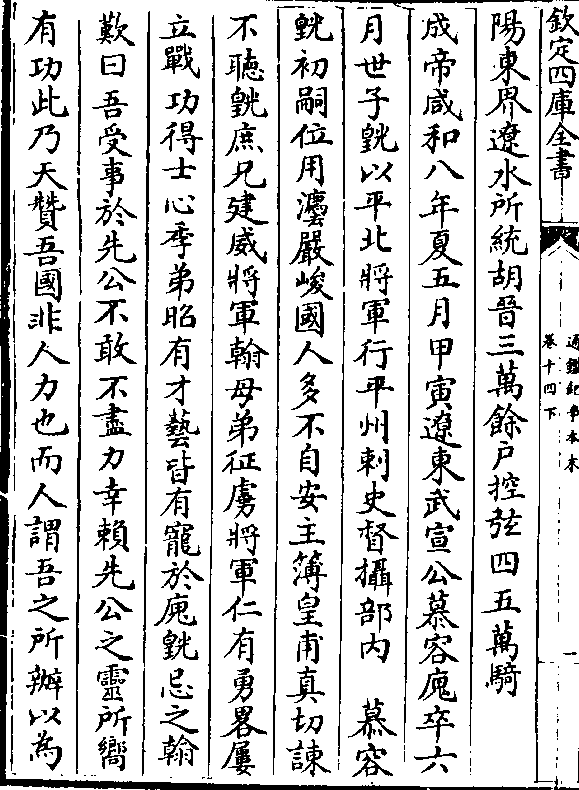 欽定四庫全書
通鑑紀事本末
卷十四下
陽東界遼水所統胡晉三萬餘戶控弦四五萬騎
成帝咸和八年夏五月甲寅遼東武宣公慕容廆卒六
月世子皝以平北將軍行平州刺史督攝部內　慕容
皝初嗣位用灋嚴峻國人多不自安主簿皇甫真切諫
不聽皝庶兄建威將軍翰母弟征虜將軍仁有勇畧屢
立戰功得士心季弟昭有才藝皆有寵於廆皝忌之翰
歎曰吾受事於先公不敢不盡力幸賴先公之靈所嚮
有功此乃天贊吾國非人力也而人謂吾之所辦以為